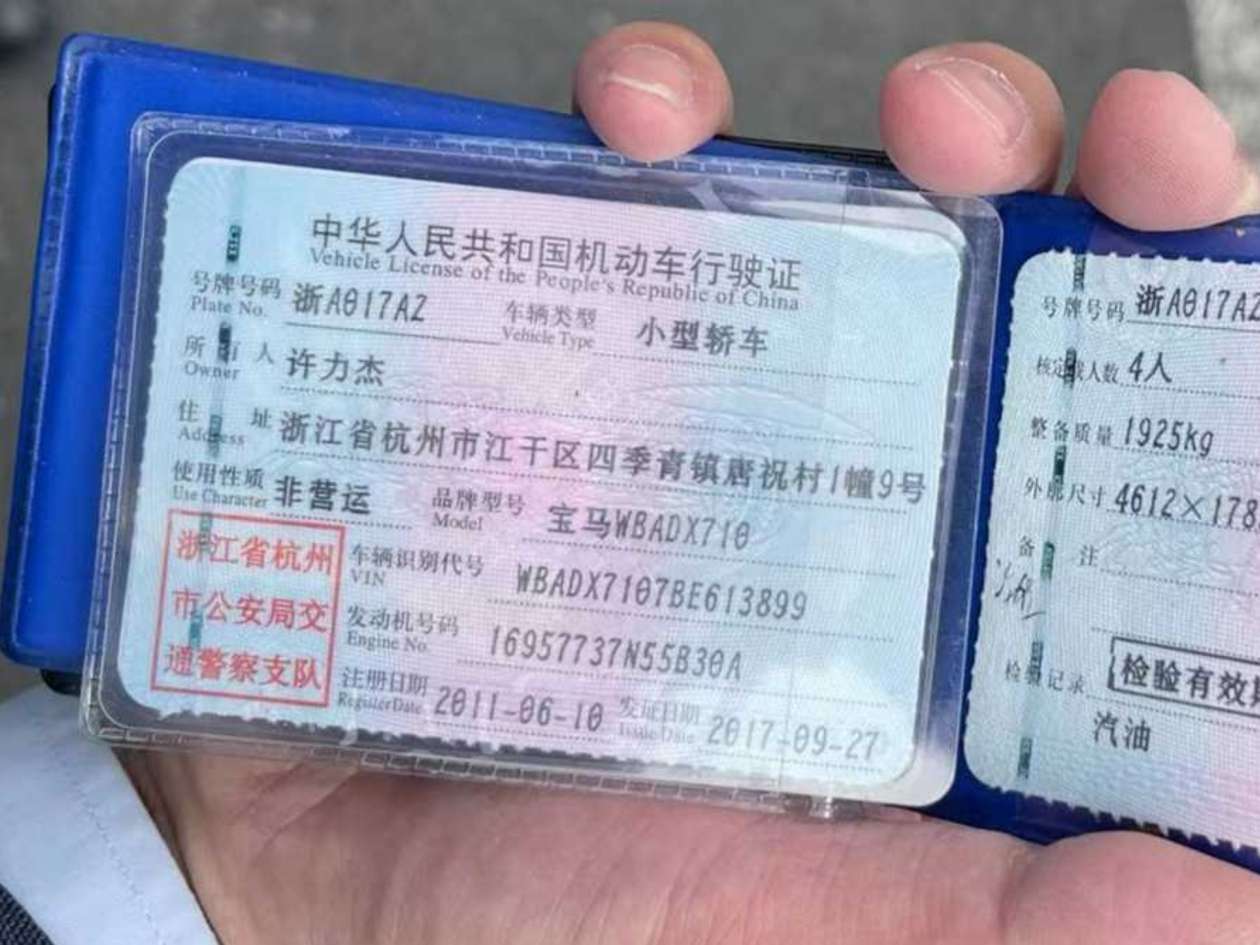 中华人民共和国机动车行驶证
Vehicle License of the People's Republic of China
号牌号码 浙A017AZ 车辆类型 小型轿车
Plate No. Vehicle Type
所有人 许力杰
Owner
住址 浙江省杭州市江干区四季青镇唐祝村1幢9号
Address
使用性质 非营运 品牌型号 宝马WBADX710
Use Character Model
浙江省杭州
市公安局交
通警察支队
车辆识别代号 WBADX7107BE613899
VIN
发动机号码 16957737N55B30A
Engine No.
注册日期 2011-06-10 发证日期 2017-09-27
Register Date Issue Date
号牌号码 浙A017AZ
核定载人数 4人
整备质量 1925kg
外廓尺寸 4612×178
备注
检验记录 检验有效期
汽油